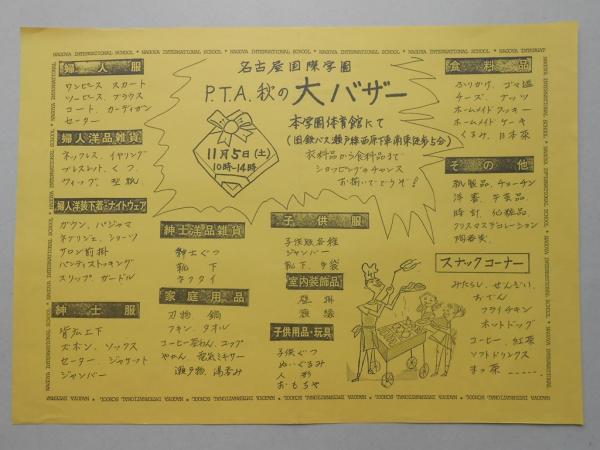 NAGOYA INTERNATIONAL SCHOOL * NAGOYA INTERNATIONAL SCHOOL * NAGOYA INTERNATIONAL SCHOOL * NAGOYA INTERNATIONAL SCHOOL
名古屋国際学園
P.T.A. 秋の大バザー
本学園体育館にて
11月5日(土)
10時~14時
衣料品から食料品まで
ショッピングのチャンス
お揃いでどうぞ!
婦人服
ワンピース スカート
ツーピース、ブラウス
コート、カーディガン
セーター
婦人洋品雑貨
ネックレス、イヤリング
ブレスレット、くつ、
ウィッグ、
婦人洋装下着・ナイトウェア
ガウン、パジャマ
ネグリジェ、ショーツ
サロン前掛
パンティストッキング
スリップ、ガードル
紳士服
背広上下
ズボン、ソックス
セーター、ジャケット
ジャンパー
紳士洋品雑貨
紳士ぐつ
靴下
ネクタイ
家庭用品
刃物 鍋
フキン タオル
コーヒー茶わん、コップ
やかん、電気ミキサー
瀬戸物、湯呑み
子供服
子供服各種
ジャンパー
靴下 手袋
室内装飾品
子供用品・玩具
子供ぐつ
ぬいぐるみ
人形
おもちゃ
食料品
ふりかけ、ゴマ塩
チーズ、ナッツ
ホームメイドクッキー
ホームメイド ケーキ
くるみ、日本茶
その他
洋書、手芸品、
時計、化粧品、
クリスマスデコレーション
スナックコーナー
みたらし、ぜんざい、
おでん
フライチキン
ホットドッグ
コーヒー、紅茶
ソフトドリンクス
まっ茶 -----.